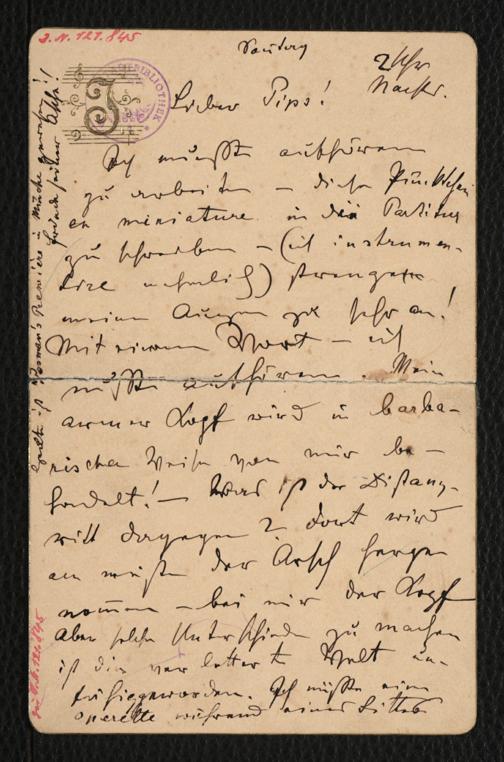 J. N. 121.845
BIBLIOTHEK
J
Sonntag
2 Uhr
Nachts.
Lieber Pips!
Ich mußte aufhören
zu arbeiten – diese
en miniature in die Partitur
zu schreiben – (ich instrumen-
tire nehmlich) strengen
meine Augen zu sehr an!
Mit einem Wort – ich
mußte aufhören. Mein
armer Kopf wird in barba-
rischer Weise von mir be-
handelt! – Was ist der Distanz-
ritt dagegen? Dort wird
am meisten der Arsch hergen-
nommen – bei mir der Kopf
Aber solche Unterschiede zu machen
ist die Welt un-
fähig geworden. Ich müßte eine
Operette während eines
Premiere in
J.N. 121.845